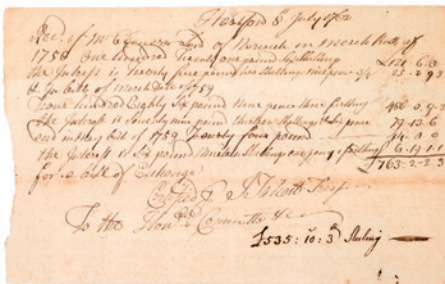 Hartford 8 July 1762
Rec.d of Mr Ebenezer of Norwich in March Bills of
1758 One hundred Twenty one pound Six Shilling £121 6 0
the Interest is Twenty five pound two Shilling nine pence 3/4 25 2 9 3
in bills of March 1759
Four hundred Eighty Six pound Nine pence three farthing 486 0 9 3
the Interest is Seventy nine pound thirteen Shilling & Six pence 79 13 6
and in May bill of 1759 Twenty four pound 44 0 0
the Interest is Six pound Nineteen Shillings one penny 1 farthing 6 19 1 1
for a Bill of Exchange £763 2 2 3
J. Talcott Treasr
To the Honble Committee &c
£535: 10: 3d Sterling